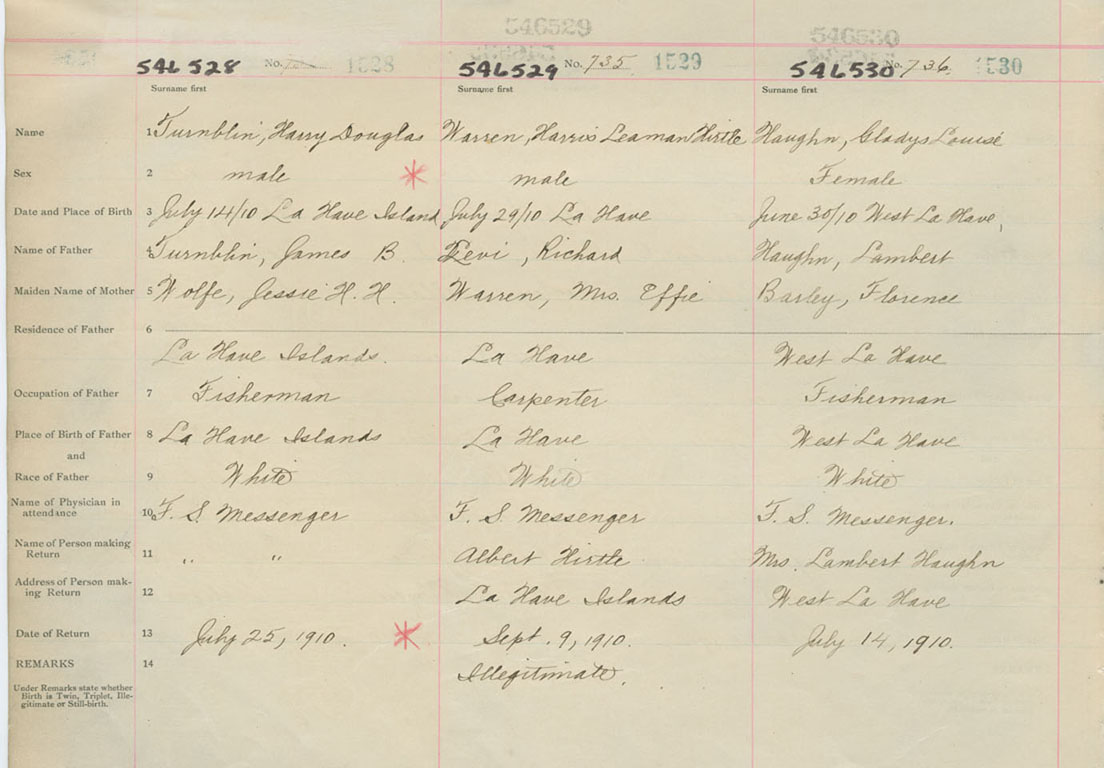 546529 546530
546528 No. 1528 546529 No. 735 1529 546530 No. 736 1530
Surname first Surname first Surname first
Name 1 Turnblin, Harry Douglas Warren, Harris Leaman Hirtle Haughn, Gladys Louise
Sex 2 male male Female
Date and Place of Birth 3 July 14/10 La Have Island July 29/10 La Have June 30/10 West La Have,
Name of Father 4 Turnblin, James B. Levi, Richard Haughn, Lambert
Maiden Name of Mother 5 Wolfe, Jessie H. H. Warren, Mrs. Effie Barley, Florence
Residence of Father 6
La Have Islands. La Have West La Have
Occupation of Father 7 Fisherman Carpenter Fisherman
Place of Birth of Father 8 La Have Islands La Have West La Have
and
Race of Father 9 White White White
Name of Physician in
attendance 10 F. S. Messenger F. S. Messenger F. S. Messenger.
Name of Person making
Return 11 " " Albert Hirtle Mrs. Lambert Haughn
Address of Person mak-
ing Return 12 La Have Islands West La Have
Date of Return 13 July 25, 1910. Sept. 9, 1910. July 14, 1910.
REMARKS 14 Illegitimate.
Under Remarks state whether
Birth is Twin, Triplet, Ille-
gitimate or Still-birth.